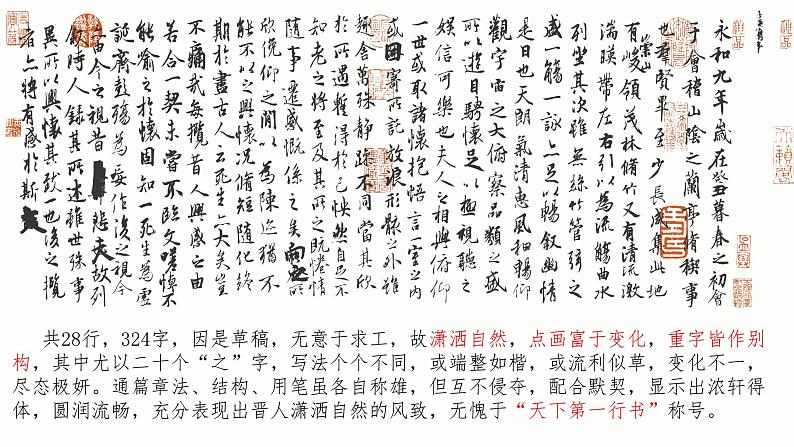 永和九年歲在癸丑暮春之初會
于會稽山陰之蘭亭脩稧事
也群賢畢至少長咸集此地
有崇山峻領茂林脩竹又有清流激
湍暎帶左右引以為流觴曲水
列坐其次雖無絲竹管弦之
盛一觴一詠亦足以暢敘幽情
是日也天朗氣清惠風和暢仰
觀宇宙之大俯察品類之盛
所以遊目騁懷足以極視聽之
娛信可樂也夫人之相與俯仰
一世或取諸懷抱悟言一室之內
或因寄所託放浪形骸之外雖
趣舍萬殊靜躁不同當其欣
於所遇暫得於己怏然自足不
知老之將至及其所之既惓情
隨事遷感慨係之矣向之所
欣俛仰之閒以為陳迹猶不
能不以之興懷況脩短隨化終
期於盡古人云死生亦大矣豈
不痛哉每攬昔人興感之由
若合一契未嘗不臨文嗟悼不
能喻之於懷固知一死生為虛
誕齊彭殤為妄作後之視今
亦由今之視昔悲夫故列
敘時人錄其所述雖世殊事
異所以興懷其致一也後之攬
者亦將有感於斯文
共28行，324字，因是草稿，无意于求工，故潇洒自然，点画富于变化，重字皆作别
构，其中尤以二十个“之”字，写法个个不同，或端整如楷，或流利似草，变化不一，
尽态极妍。通篇章法、结构、用笔虽各自称雄，但互不侵夺，配合默契，显示出浓轩得
体，圆润流畅，充分表现出晋人潇洒自然的风致，无愧于“天下第一行书”称号。